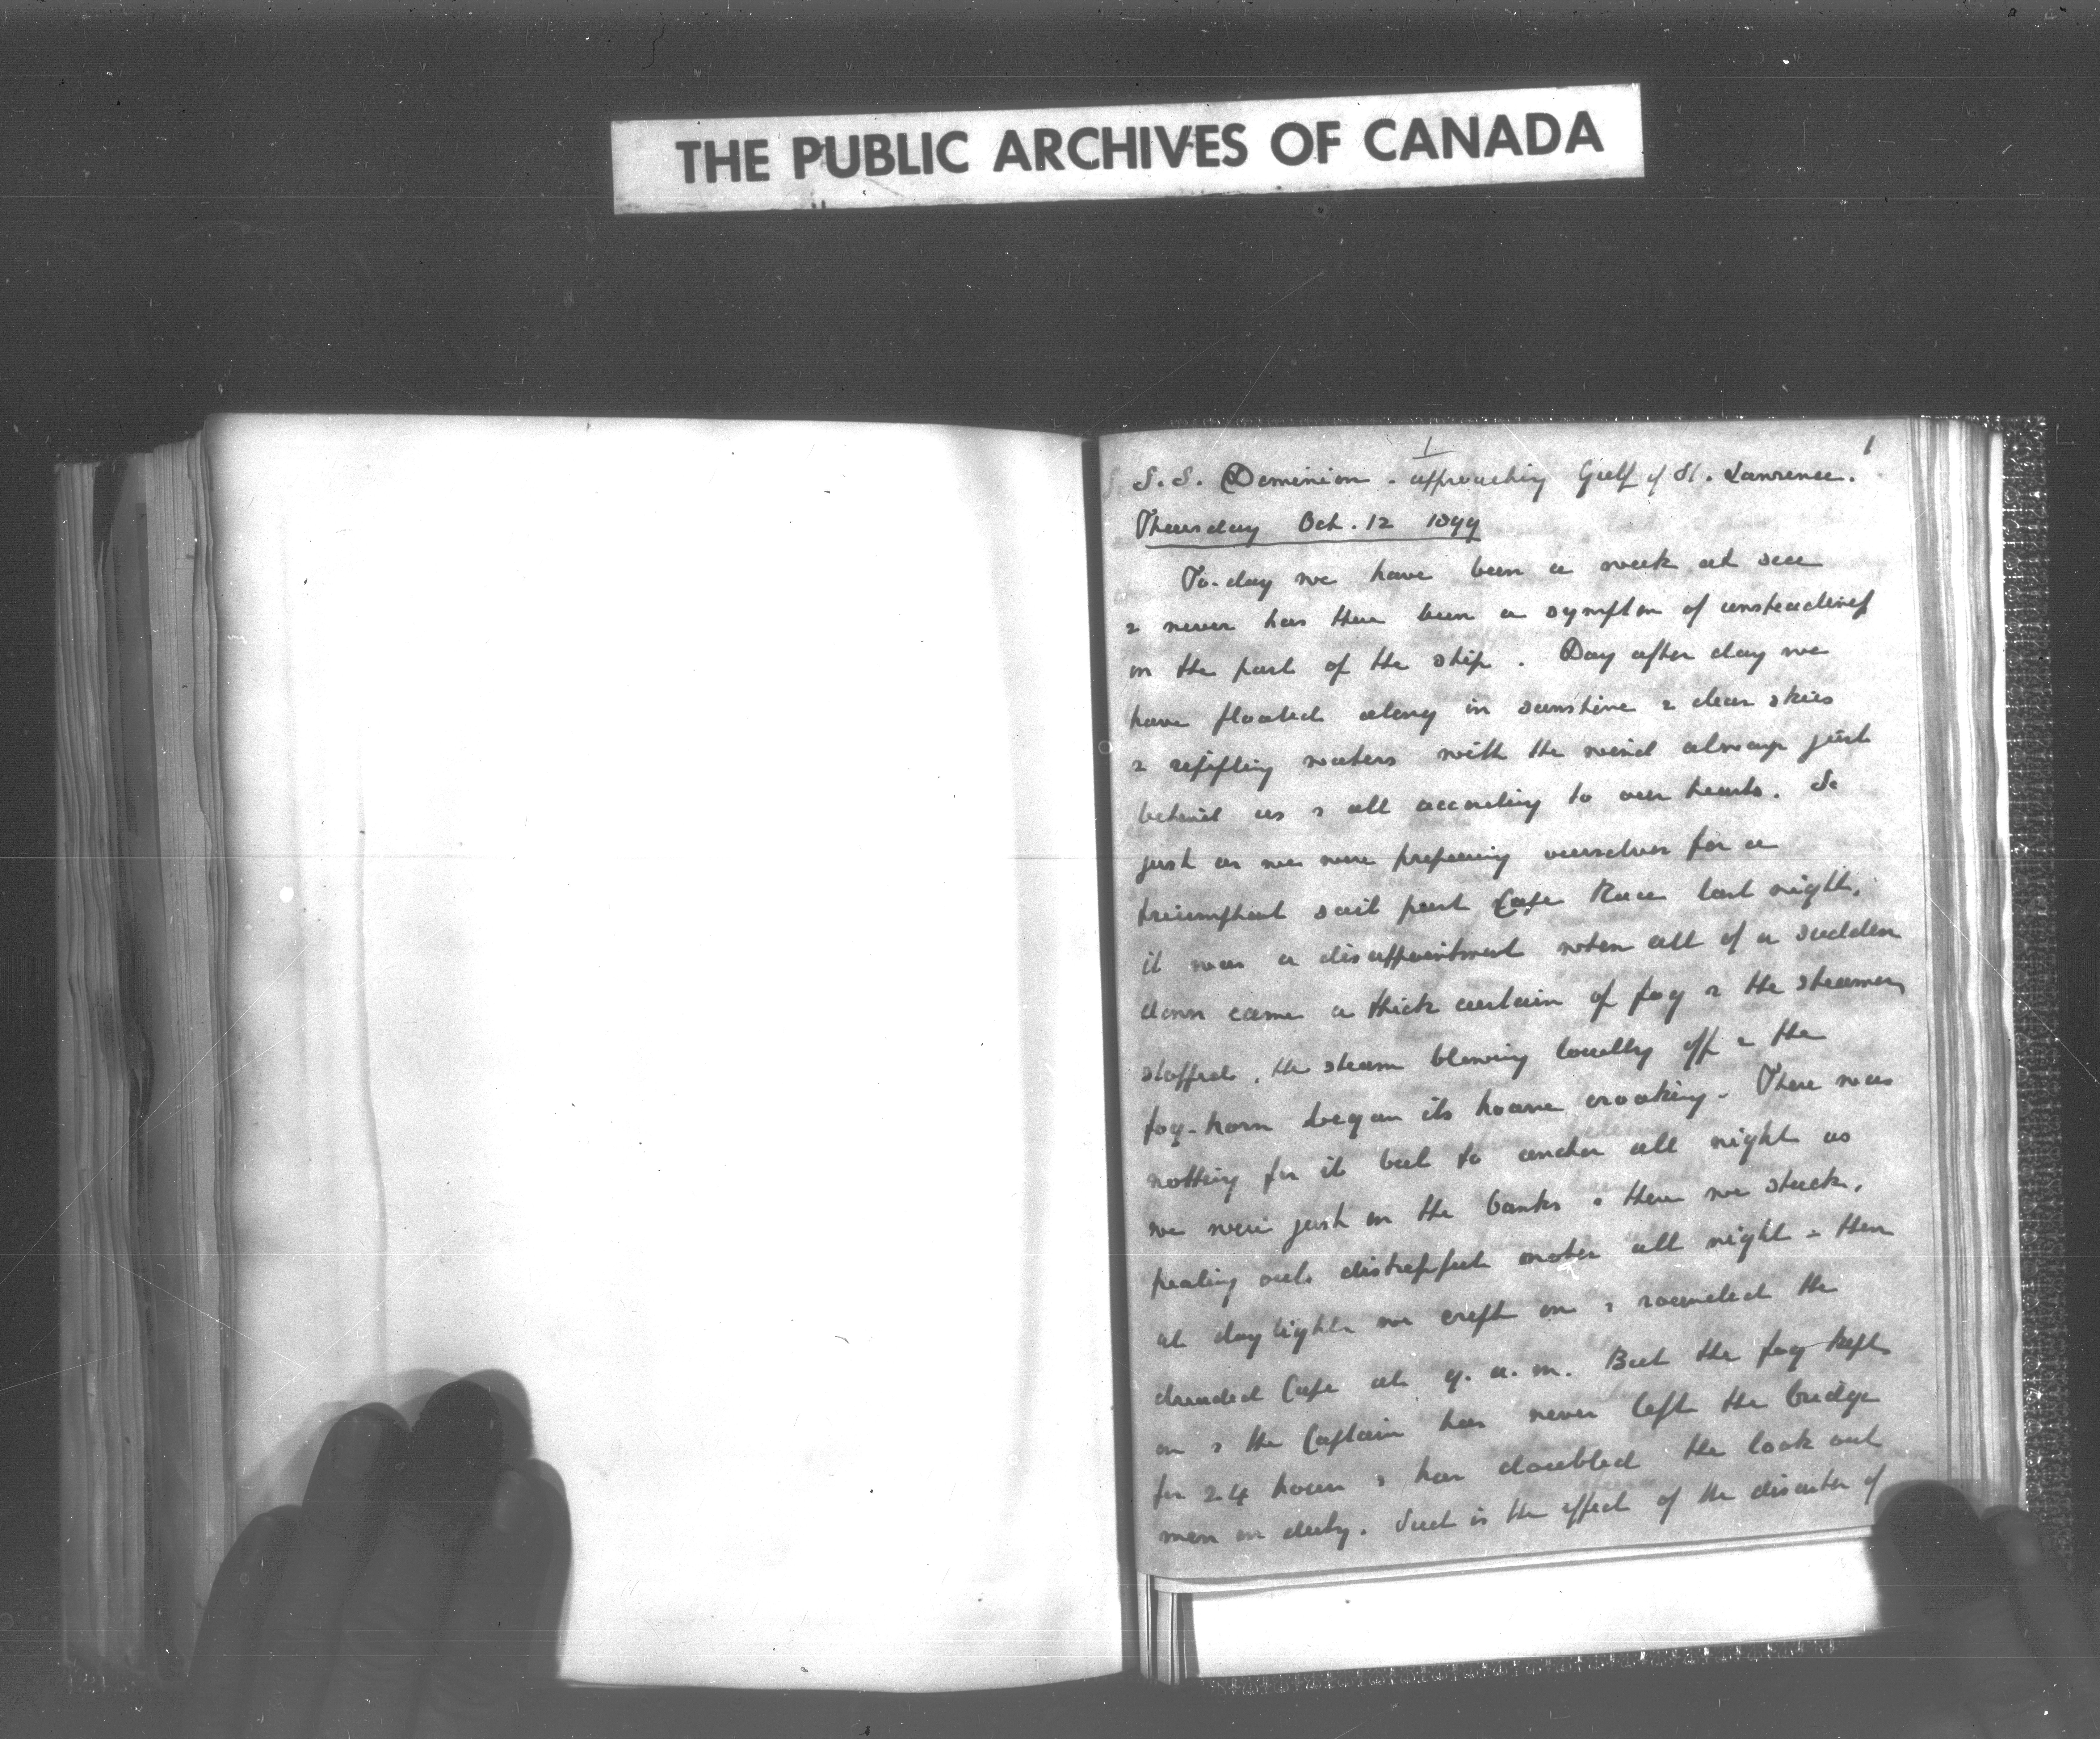 THE PUBLIC ARCHIVES OF CANADA
1
1
S.S. Dominion - approaching Gulf of St. Lawrence.
Thursday Oct. 12 1899
To-day we have been a week at sea
& never has there been a symptom of unsteadiness
on the part of the ship. Day after day we
have floated along in sunshine & clear skies
& rippling waters with the wind always just
behind us & all according to our hearts. So
just as we were preparing ourselves for a
triumphant sail past Cape Race last night,
it was a disappointment when all of a sudden
down came a thick curtain of fog & the steamer
stopped, the steam blowing loudly off & the
fog-horn began its hoarse croaking. There was
nothing for it but to anchor all night as
we were just on the banks & there we stuck,
pealing out distressful notes all night & then
at daylight we crept on & rounded the
dreaded Cape at 9. a.m. But the fog kept
on & the Captain has never left the bridge
for 24 hours & has doubled the look out
men on duty. Such is the effect of the disaster of